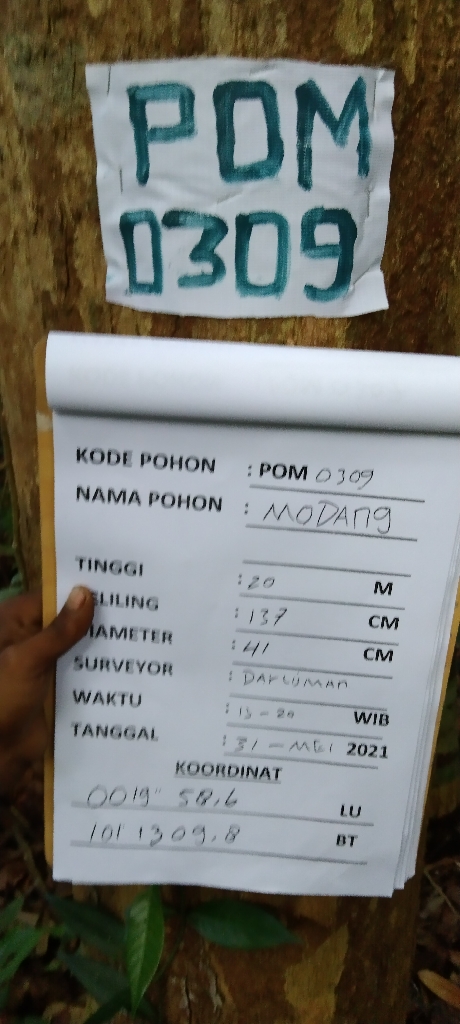 POM
0309
KODE POHON : POM 0309
NAMA POHON : MODANG
TINGGI : 20 M
LILING : 137 CM
IAMETER : 41 CM
SURVEYOR : DARLUMAN
WAKTU : 13-20 WIB
TANGGAL : 31-MEI 2021
KOORDINAT
0019" 58,6 LU
101 1309,8 BT